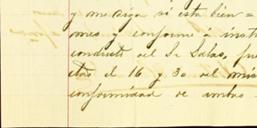 y me diga si esta bien =
mes y conforme = inst
conducto del Sr Salas, fue
etas el 16 y 30 del mis
conformidad de ambas